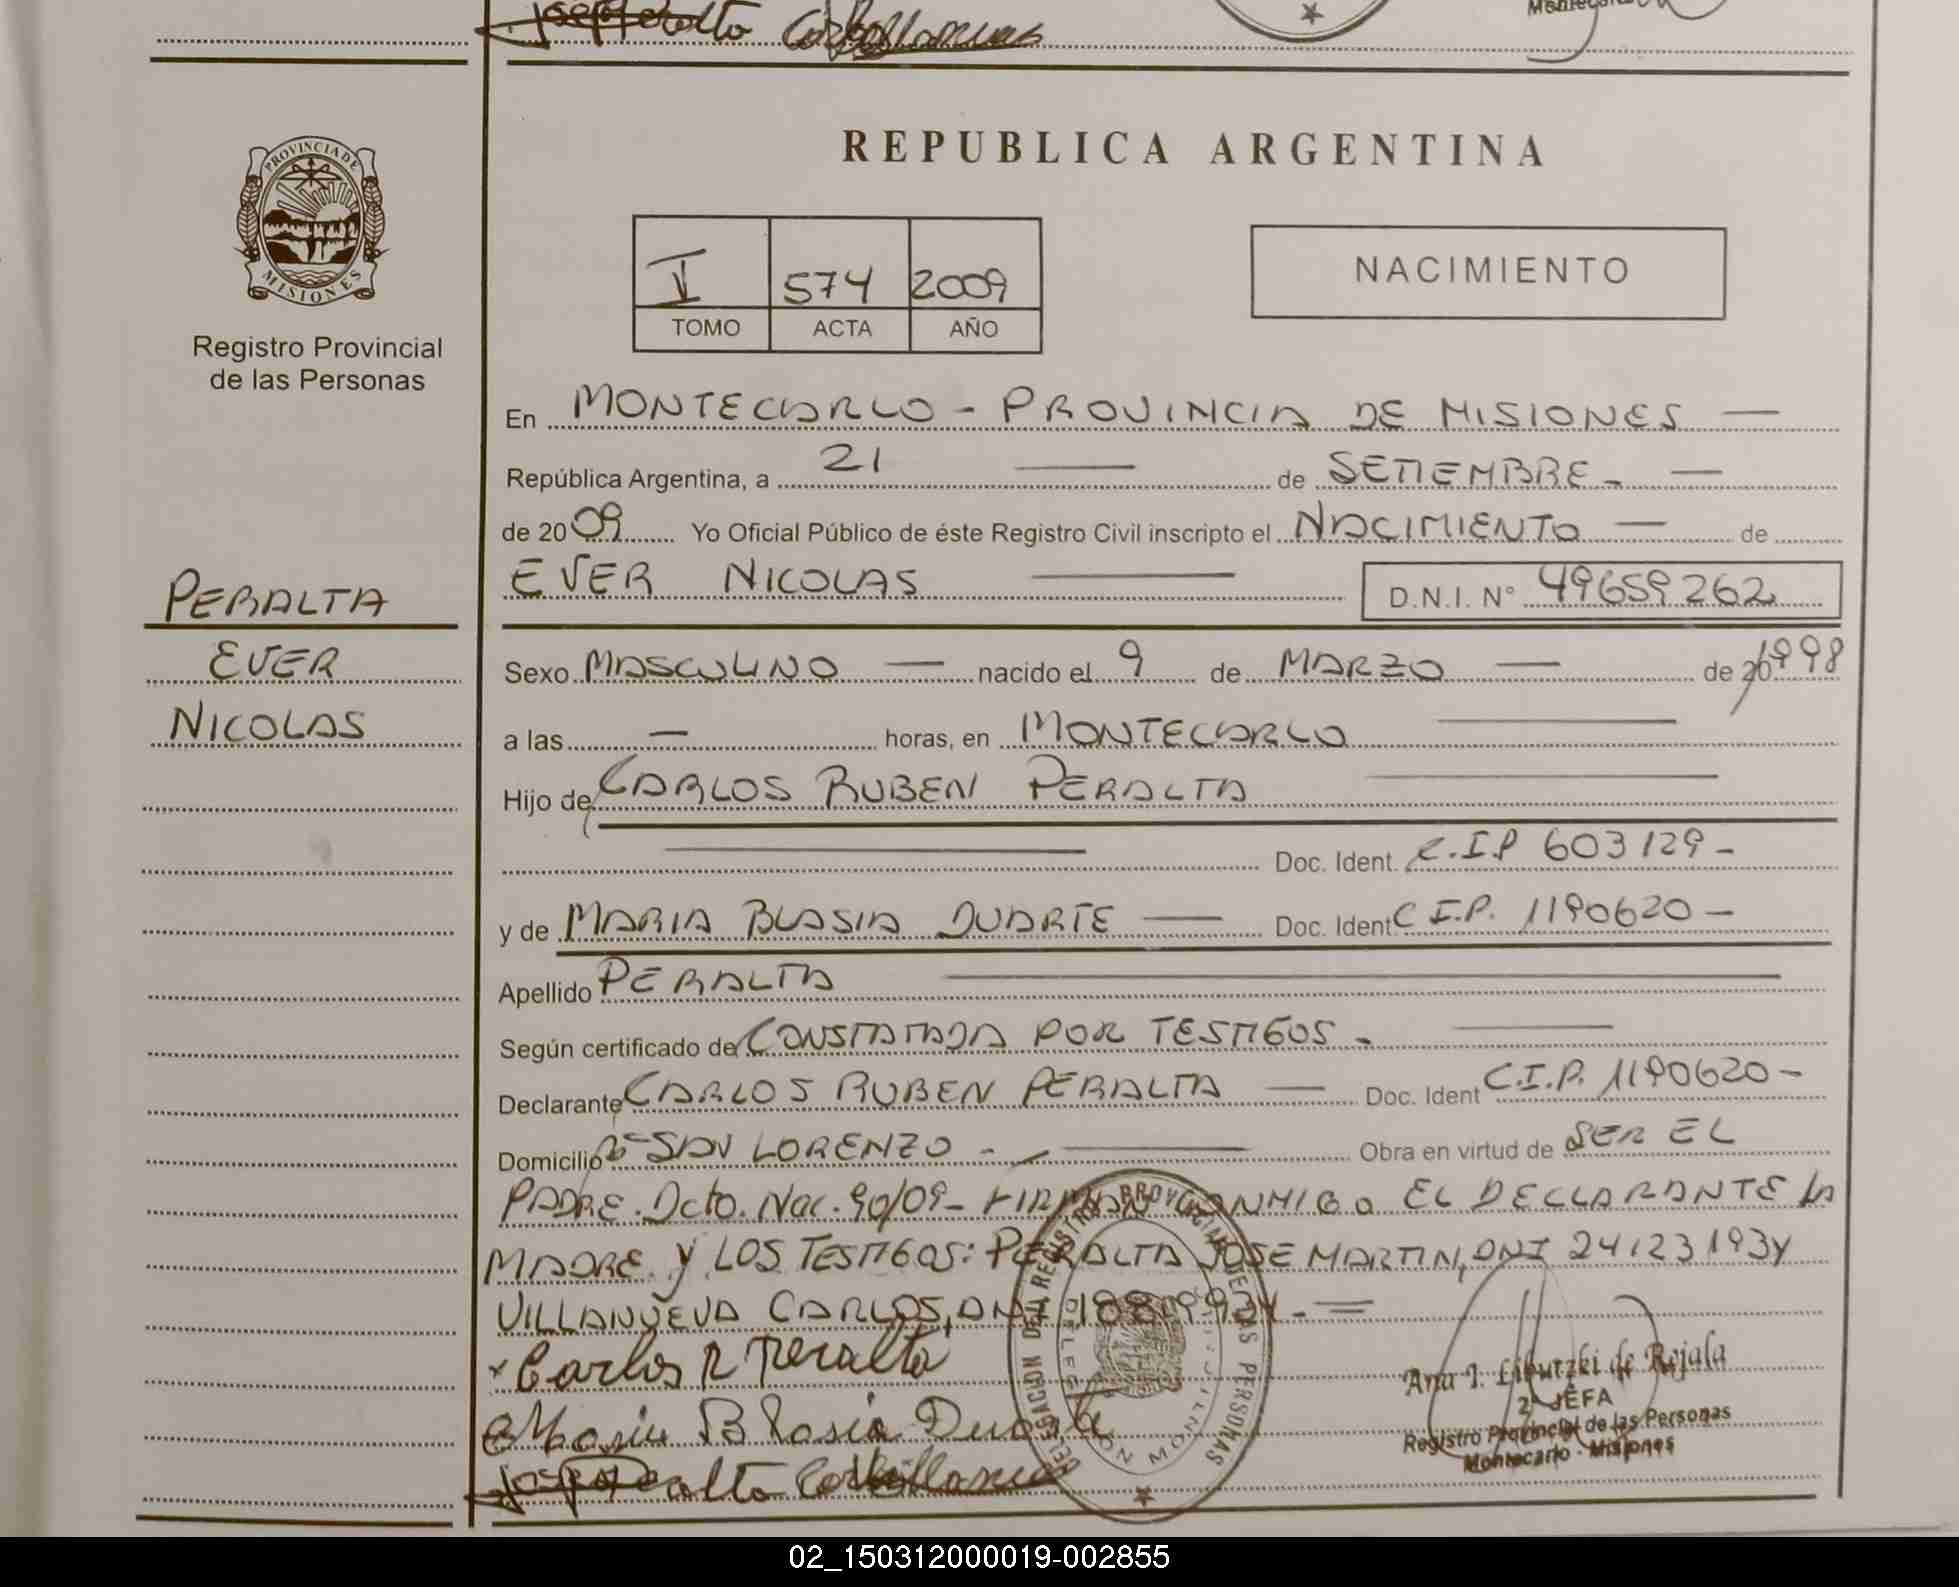 Jose Peralta Carlos Villanueva
REPUBLICA ARGENTINA
PROVINCIA DE
MISIONES
Registro Provincial
de las Personas
I 574 2009
TOMO ACTA AÑO
NACIMIENTO
En MONTECARLO - PROVINCIA DE MISIONES —
República Argentina, a 21 — de SETIEMBRE - —
de 2009 Yo Oficial Público de éste Registro Civil inscripto el NACIMIENTO — de
EVER NICOLAS — D.N.I. N° 49659262
PERALTA
EVER
NICOLAS
Sexo MASCULINO — nacido el 9 de MARZO — de 20 1998
a las — horas, en MONTECARLO —
Hijo de CARLOS RUBEN PERALTA —
— Doc. Ident. C.I.P 603129 -
y de MARIA BLASIA DUARTE — Doc. Ident C.I.P. 1190620 -
Apellido PERALTA —
Según certificado de CONSTATADA POR TESTIGOS - —
Declarante CARLOS RUBEN PERALTA — Doc. Ident C.I.P. 1190620 -
Domicilio Bº SAN LORENZO - — Obra en virtud de SER EL
PADRE. Dcto. Nac. 90/09 - FIRMAN CONMIGO EL DECLARANTE LA
MADRE Y LOS TESTIGOS: PERALTA JOSE MARTIN, DNI 24123193 Y
VILLANUEVA CARLOS, DNI - =
Carlos R Peralta
Maria Blasia Duarte
Jose Peralta Carlos Villanueva
DELEGACION DEL REGISTRO PROVINCIAL DE LAS PERSONAS
Ana I. Liburzki de Rojala
2ª JEFA
Registro Provincial de las Personas
Montecarlo - Misiones
02_150312000019-002855